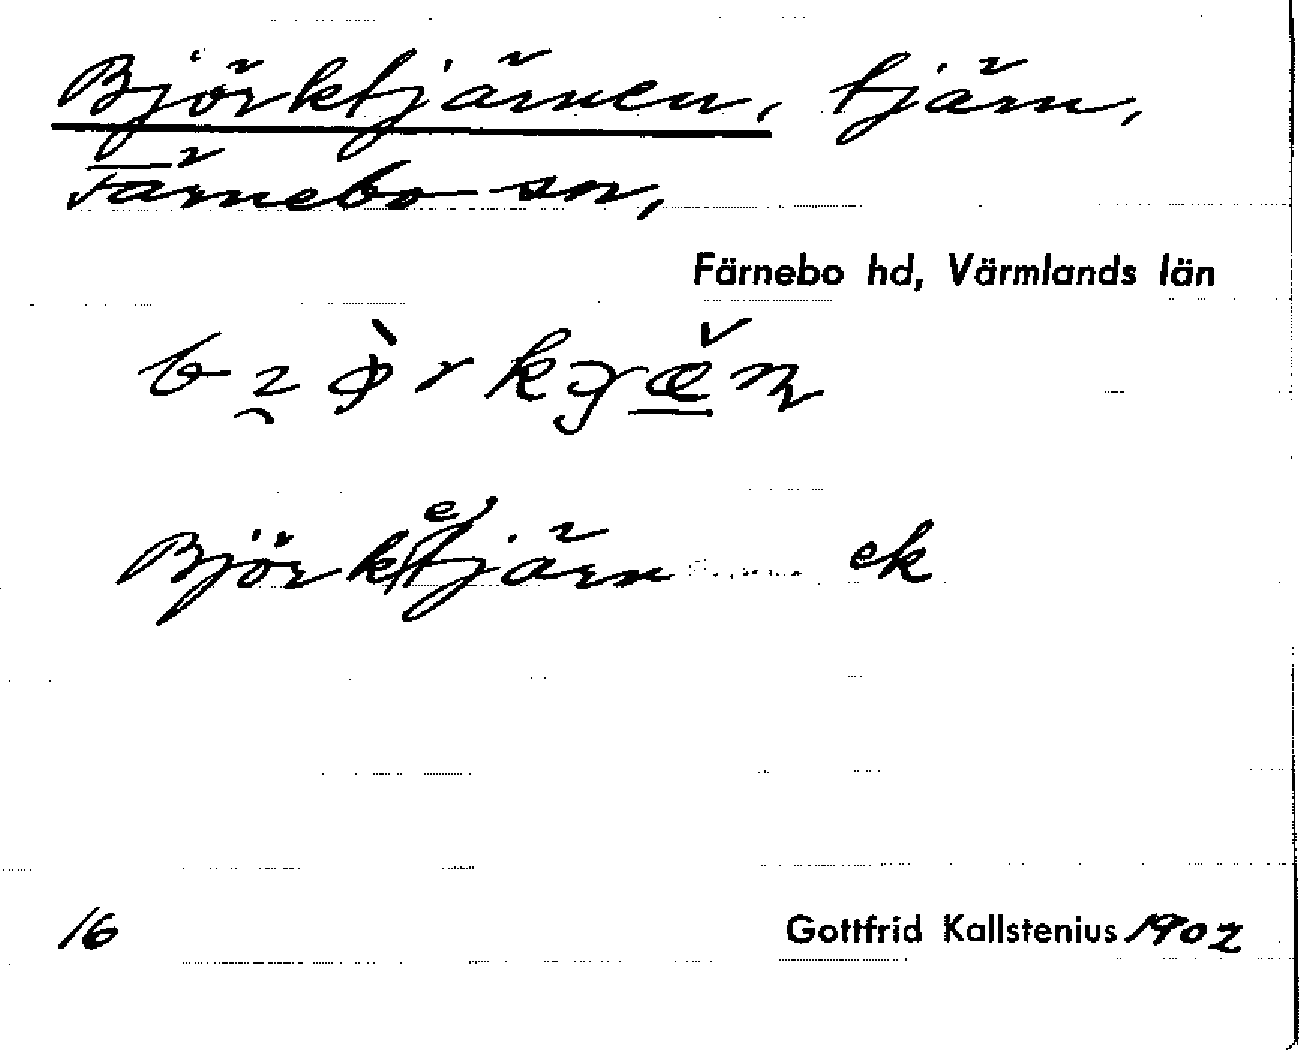 Björktjärnen, tjärn,
Färnebo sn,
Färnebo hd, Värmlands län
Björk(e)tjärn ek
16 Gottfrid Kallstenius 1902